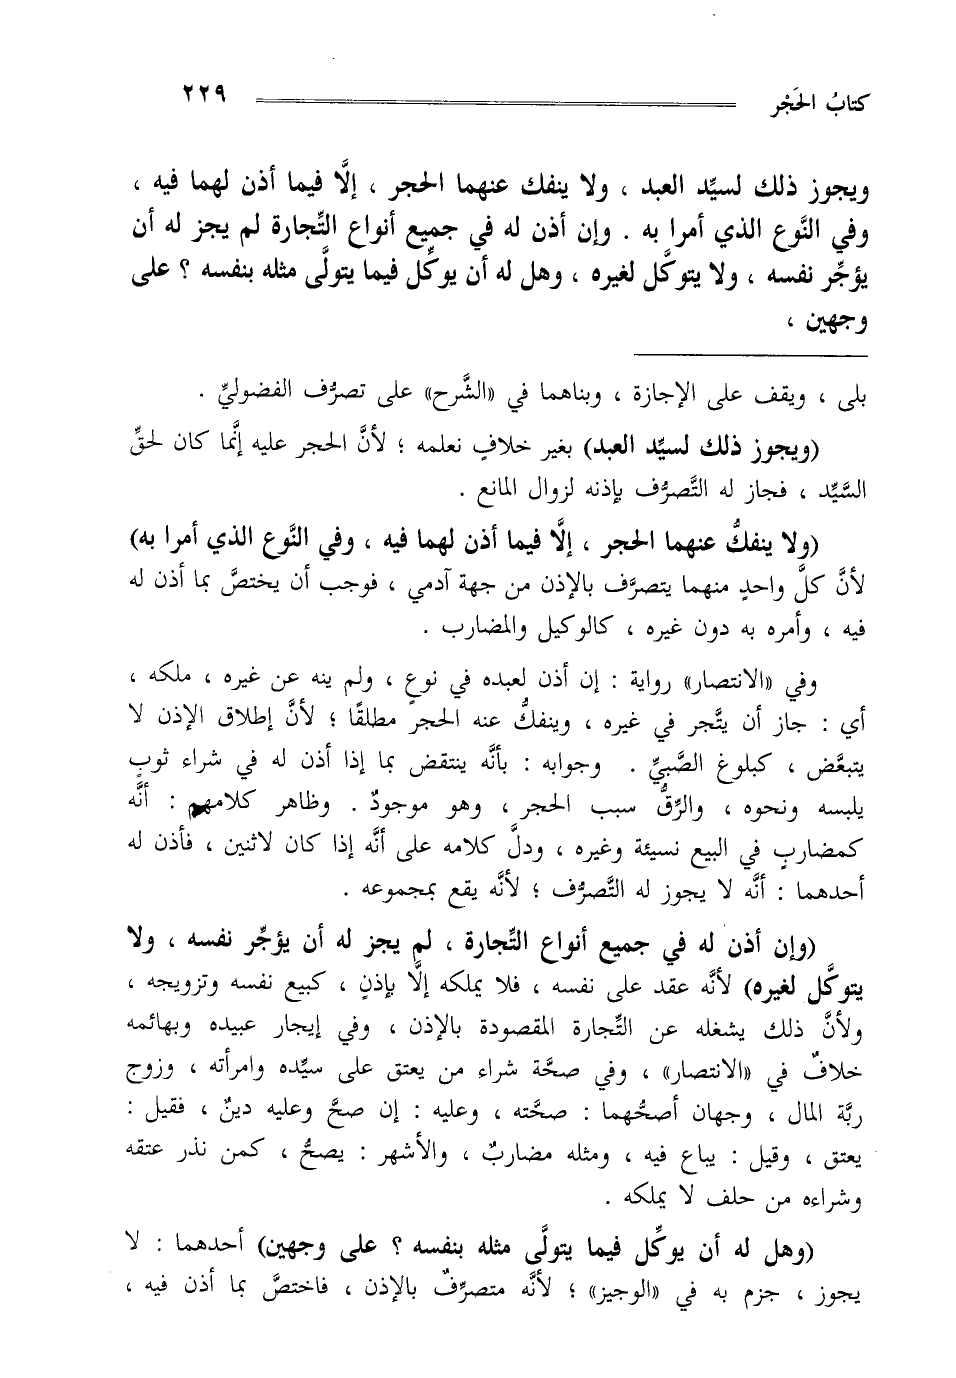 كتابُ الحَجْر ٢٢٩
ويجوز ذلك لسيِّد العبد ، ولا ينفك عنهما الحجر ، إلَّا فيما أذن لهما فيه ،
وفي النَّوع الذي أمرا به . وإن أذن له في جميع أنواع التِّجارة لم يجز له أن
يؤجِّر نفسه ، ولا يتوكَّل لغيره ، وهل له أن يوكِّل فيما يتولَّى مثله بنفسه ؟ على
وجهين ،
بلى ، ويقف على الإجازة ، وبناهما في «الشَّرح» على تصرُّف الفضوليِّ .
(ويجوز ذلك لسيِّد العبد) بغير خلافٍ نعلمه ؛ لأنَّ الحجر عليه إنَّما كان لحقِّ
السَّيِّد ، فجاز له التَّصرُّف بإذنه لزوال المانع .
(ولا ينفكُّ عنهما الحجر ، إلَّا فيما أذن لهما فيه ، وفي النَّوع الذي أمرا به)
لأنَّ كلَّ واحدٍ منهما يتصرَّف بالإذن من جهة آدمي ، فوجب أن يختصَّ بما أذن له
فيه ، وأمره به دون غيره ، كالوكيل والمضارب .
وفي «الانتصار» رواية : إن أذن لعبده في نوعٍ ، ولم ينه عن غيره ، ملكه ،
أي : جاز أن يتَّجر في غيره ، وينفكُّ عنه الحجر مطلقًا ؛ لأنَّ إطلاق الإذن لا
يتبعَّض ، كبلوغ الصَّبيِّ . وجوابه : بأنَّه ينتقض بما إذا أذن له في شراء ثوبٍ
يلبسه ونحوه ، والرِّقُّ سبب الحجر ، وهو موجودٌ . وظاهر كلامهم : أنَّه
كمضاربٍ في البيع نسيئة وغيره ، ودلَّ كلامه على أنَّه إذا كان لاثنين ، فأذن له
أحدهما : أنَّه لا يجوز له التَّصرُّف ؛ لأنَّه يقع بمجموعه .
(وإن أذن له في جميع أنواع التِّجارة ، لم يجز له أن يؤجِّر نفسه ، ولا
يتوكَّل لغيره) لأنَّه عقد على نفسه ، فلا يملكه إلَّا بإذنٍ ، كبيع نفسه وتزويجه ،
ولأنَّ ذلك يشغله عن التِّجارة المقصودة بالإذن ، وفي إيجار عبيده وبهائمه
خلافٌ في «الانتصار» ، وفي صحَّة شراء من يعتق على سيِّده وامرأته ، وزوج
ربَّة المال ، وجهان أصحُّهما : صحَّته ، وعليه : إن صحَّ وعليه دينٌ ، فقيل :
يعتق ، وقيل : يباع فيه ، ومثله مضاربٌ ، والأشهر : يصحُّ ، كمن نذر عتقه
وشراءه من حلف لا يملكه .
(وهل له أن يوكِّل فيما يتولَّى مثله بنفسه ؟ على وجهين) أحدهما : لا
يجوز ، جزم به في «الوجيز» ؛ لأنَّه متصرِّفٌ بالإذن ، فاختصَّ بما أذن فيه ،